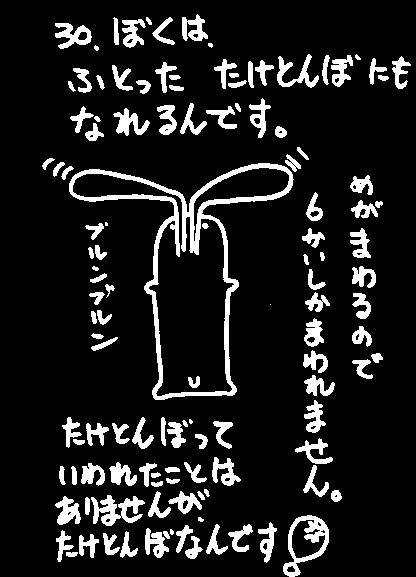 30. ぼくは、
ふとった たけとんぼにも
なれるんです。
めがまわるので
6かいしかまわれません。
ブルンブルン
たけとんぼって
いわれたことは
ありませんが、
たけとんぼなんです